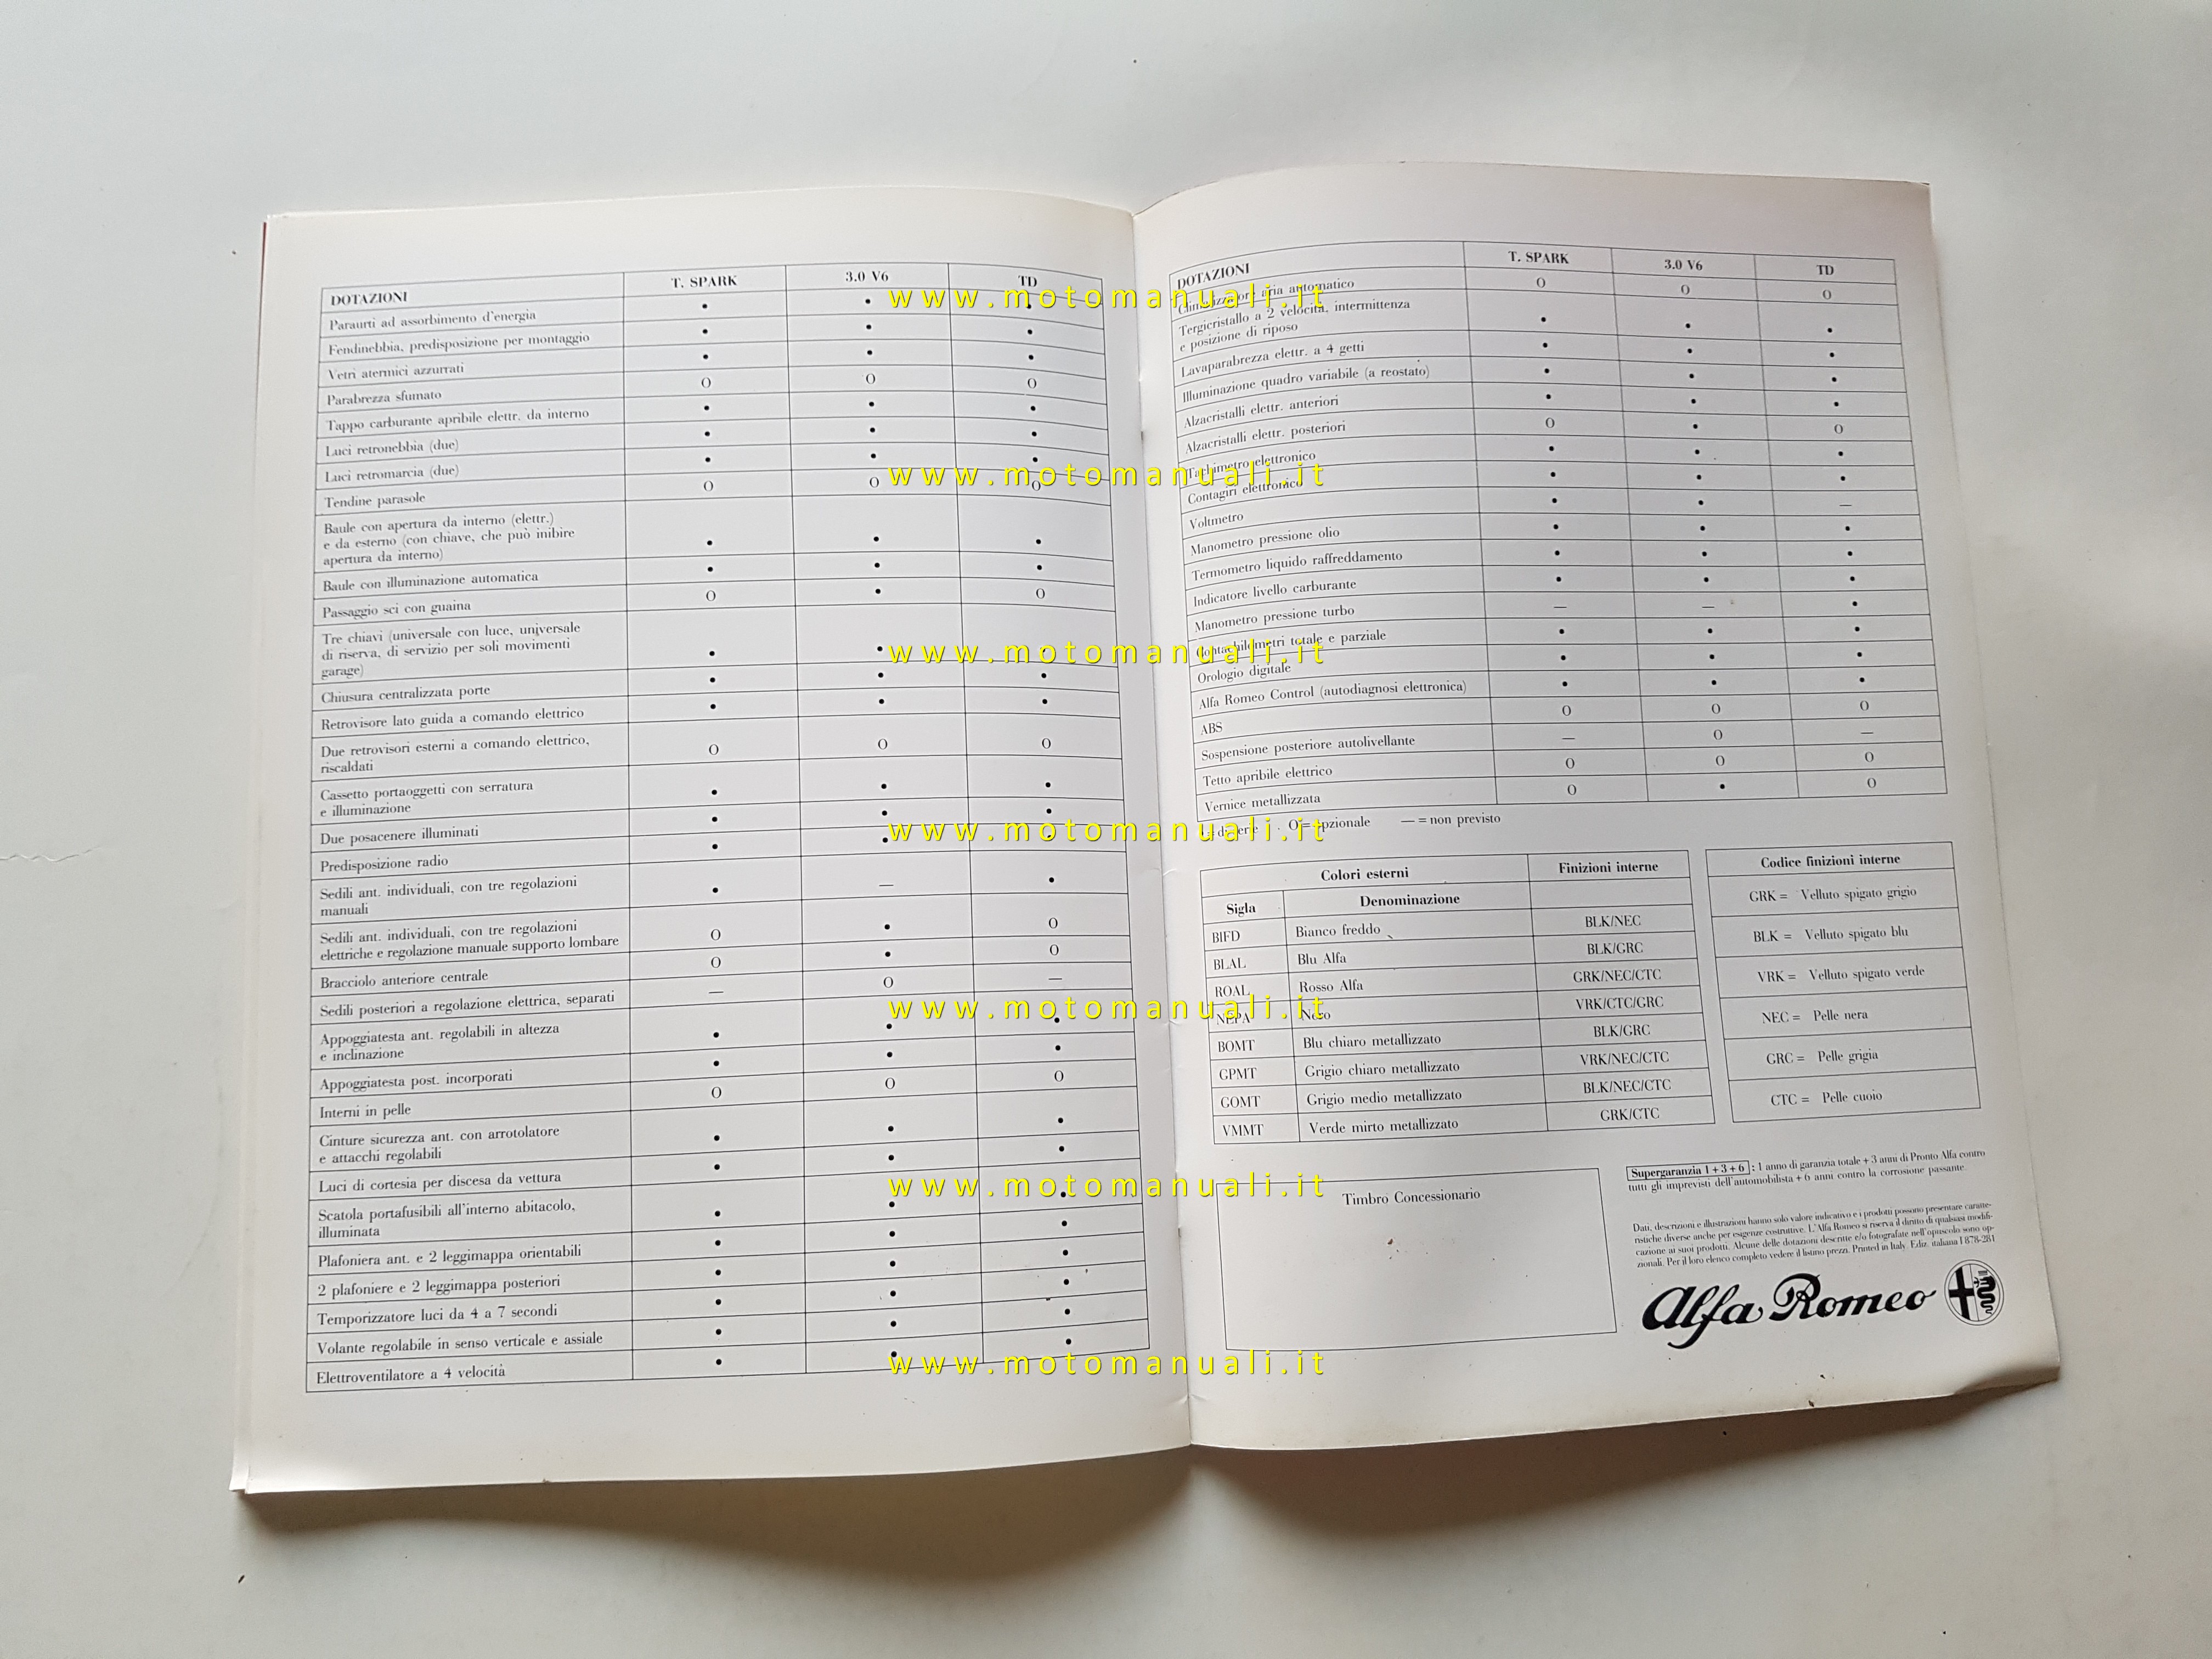 DOTAZIONI T. SPARK 3.0 V6 TD
Paraurti ad assorbimento d'energia • • •
Fendinebbia, predisposizione per montaggio • • •
Vetri atermici azzurrati • • •
Parabrezza sfumato O O O
Tappo carburante apribile elettr. da interno • • •
Luci retronebbia (due) • • •
Luci retromarcia (due) • • •
Tendine parasole O O O
Baule con apertura da interno (elettr.)
e da esterno (con chiave, che può inibire
apertura da interno) • • •
Baule con illuminazione automatica • • •
Passaggio sci con guaina O • O
Tre chiavi (universale con luce, universale
di riserva, di servizio per soli movimenti
garage) • •
Chiusura centralizzata porte • • •
Retrovisore lato guida a comando elettrico • • •
Due retrovisori esterni a comando elettrico,
riscaldati O O O
Cassetto portaoggetti con serratura
e illuminazione • • •
Due posacenere illuminati • • •
Predisposizione radio • •
Sedili ant. individuali, con tre regolazioni
manuali • — •
Sedili ant. individuali, con tre regolazioni
elettriche e regolazione manuale supporto lombare O • O
Bracciolo anteriore centrale O • O
Sedili posteriori a regolazione elettrica, separati — O —
Appoggiatesta ant. regolabili in altezza
e inclinazione • • •
Appoggiatesta post. incorporati • • •
Interni in pelle O O O
Cinture sicurezza ant. con arrotolatore
e attacchi regolabili • • •
Luci di cortesia per discesa da vettura • • •
Scatola portafusibili all'interno abitacolo,
illuminata • • •
Plafoniera ant. e 2 leggimappa orientabili • • •
2 plafoniere e 2 leggimappa posteriori • • •
Temporizzatore luci da 4 a 7 secondi • • •
Volante regolabile in senso verticale e assiale • • •
Elettroventilatore a 4 velocità • • •
DOTAZIONI T. SPARK 3.0 V6 TD
aria automatico O O O
Tergicristallo a 2 velocità, intermittenza
e posizione di riposo • • •
Lavaparabrezza elettr. a 4 getti • • •
Illuminazione quadro variabile (a reostato) • • •
Alzacristalli elettr. anteriori • • •
Alzacristalli elettr. posteriori O • O
Tachimetro elettronico • • •
Contagiri elettronico • • •
Voltmetro • • —
Manometro pressione olio • • •
Termometro liquido raffreddamento • • •
Indicatore livello carburante • • •
Manometro pressione turbo — — •
Contachilometri totale e parziale • • •
Orologio digitale • • •
Alfa Romeo Control (autodiagnosi elettronica) • • •
ABS O O O
Sospensione posteriore autolivellante — O —
Tetto apribile elettrico O O O
Vernice metallizzata O • O
O = opzionale — = non previsto
Colori esterni Finizioni interne
Sigla Denominazione
BIFD Bianco freddo BLK/NEC
BLAL Blu Alfa BLK/GRC
ROAL Rosso Alfa GRK/NEC/CTC
NEPA Nero VRK/CTC/GRC
BOMT Blu chiaro metallizzato BLK/GRC
GPMT Grigio chiaro metallizzato VRK/NEC/CTC
GOMT Grigio medio metallizzato BLK/NEC/CTC
VMMT Verde mirto metallizzato GRK/CTC
Codice finizioni interne
GRK = Velluto spigato grigio
BLK = Velluto spigato blu
VRK = Velluto spigato verde
NEC = Pelle nera
GRC = Pelle grigia
CTC = Pelle cuoio
Timbro Concessionario
Supergaranzia 1 + 3 + 6 : 1 anno di garanzia totale + 3 anni di Pronto Alfa contro
tutti gli imprevisti dell'automobilista + 6 anni contro la corrosione passante.
Dati, descrizioni e illustrazioni hanno solo valore indicativo e i prodotti possono presentare caratte-
ristiche diverse anche per esigenze costruttive. L'Alfa Romeo si riserva il diritto di qualsiasi modifi-
cazione ai suoi prodotti. Alcune delle dotazioni descritte e/o fotografate nell'opuscolo sono op-
zionali. Per il loro elenco completo vedere il listino prezzi. Printed in Italy. Ediz. italiana 1 878-281
Alfa Romeo
www.motomanuali.it
www.motomanuali.it
www.motomanuali.it
www.motomanuali.it
www.motomanuali.it
www.motomanuali.it
www.motomanuali.it